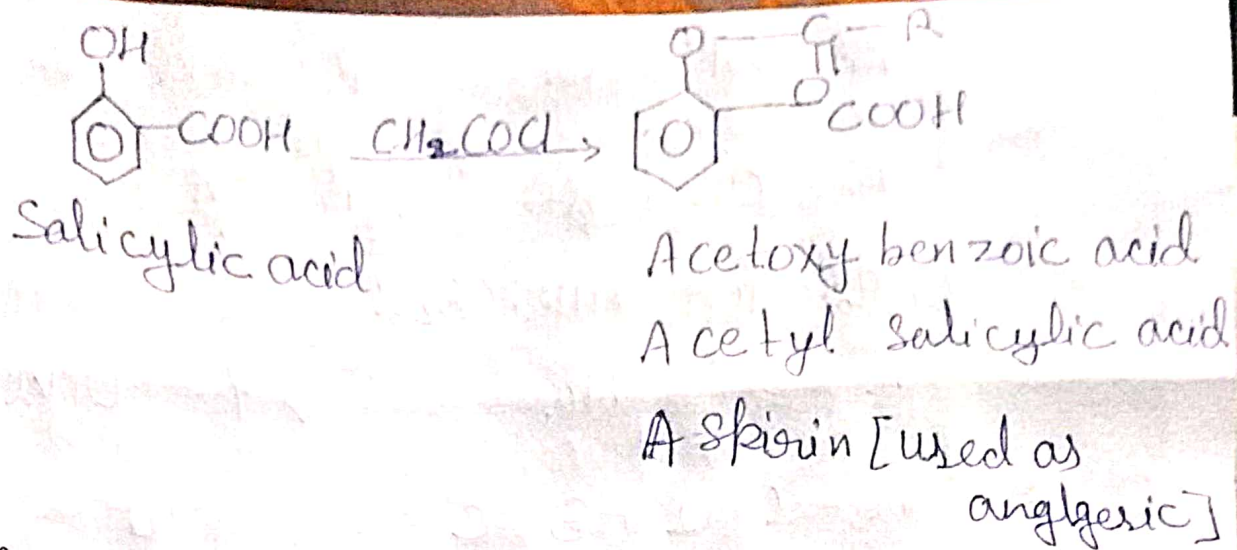 OH
COOH
CH3COCl
O C R
O
COOH
Salicylic acid
Acetoxy benzoic acid
Acetyl salicylic acid
Askirin [used as
anglgesic]